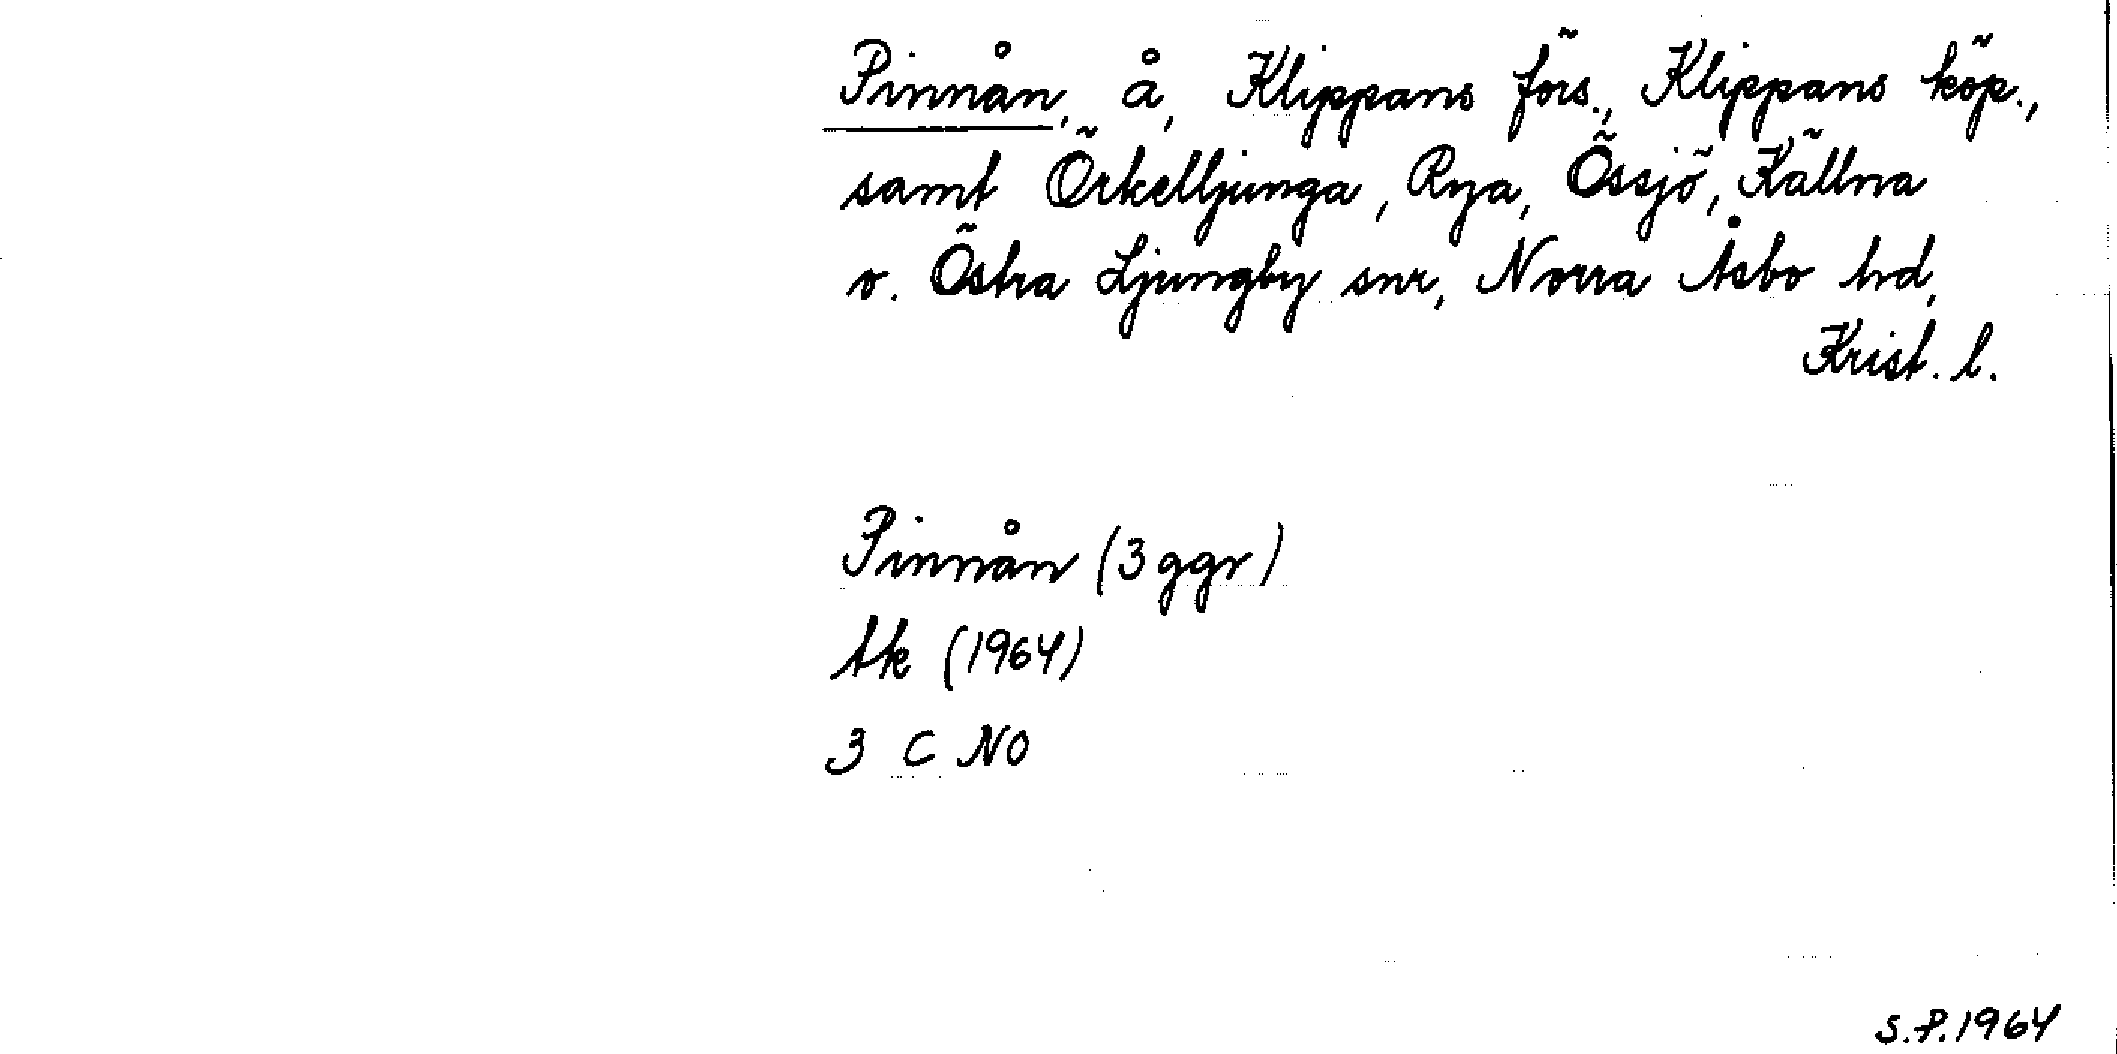 Pinnån, å, Klippans förs., Klippans köp.,
samt Örkelljunga, Rya, Össjö, Källna
o. Östra Ljungby snr, Norra Åsbo hd,
Krist. l.
Pinnån (3 ggr)
tk (1964)
3 C NO
S.P. 1964